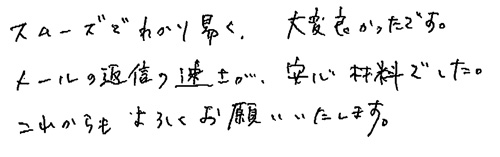 スムーズでわかり易く、大変良かったです。
メールの返信の速さが、安心材料でした。
これからもよろしくお願いいたします。